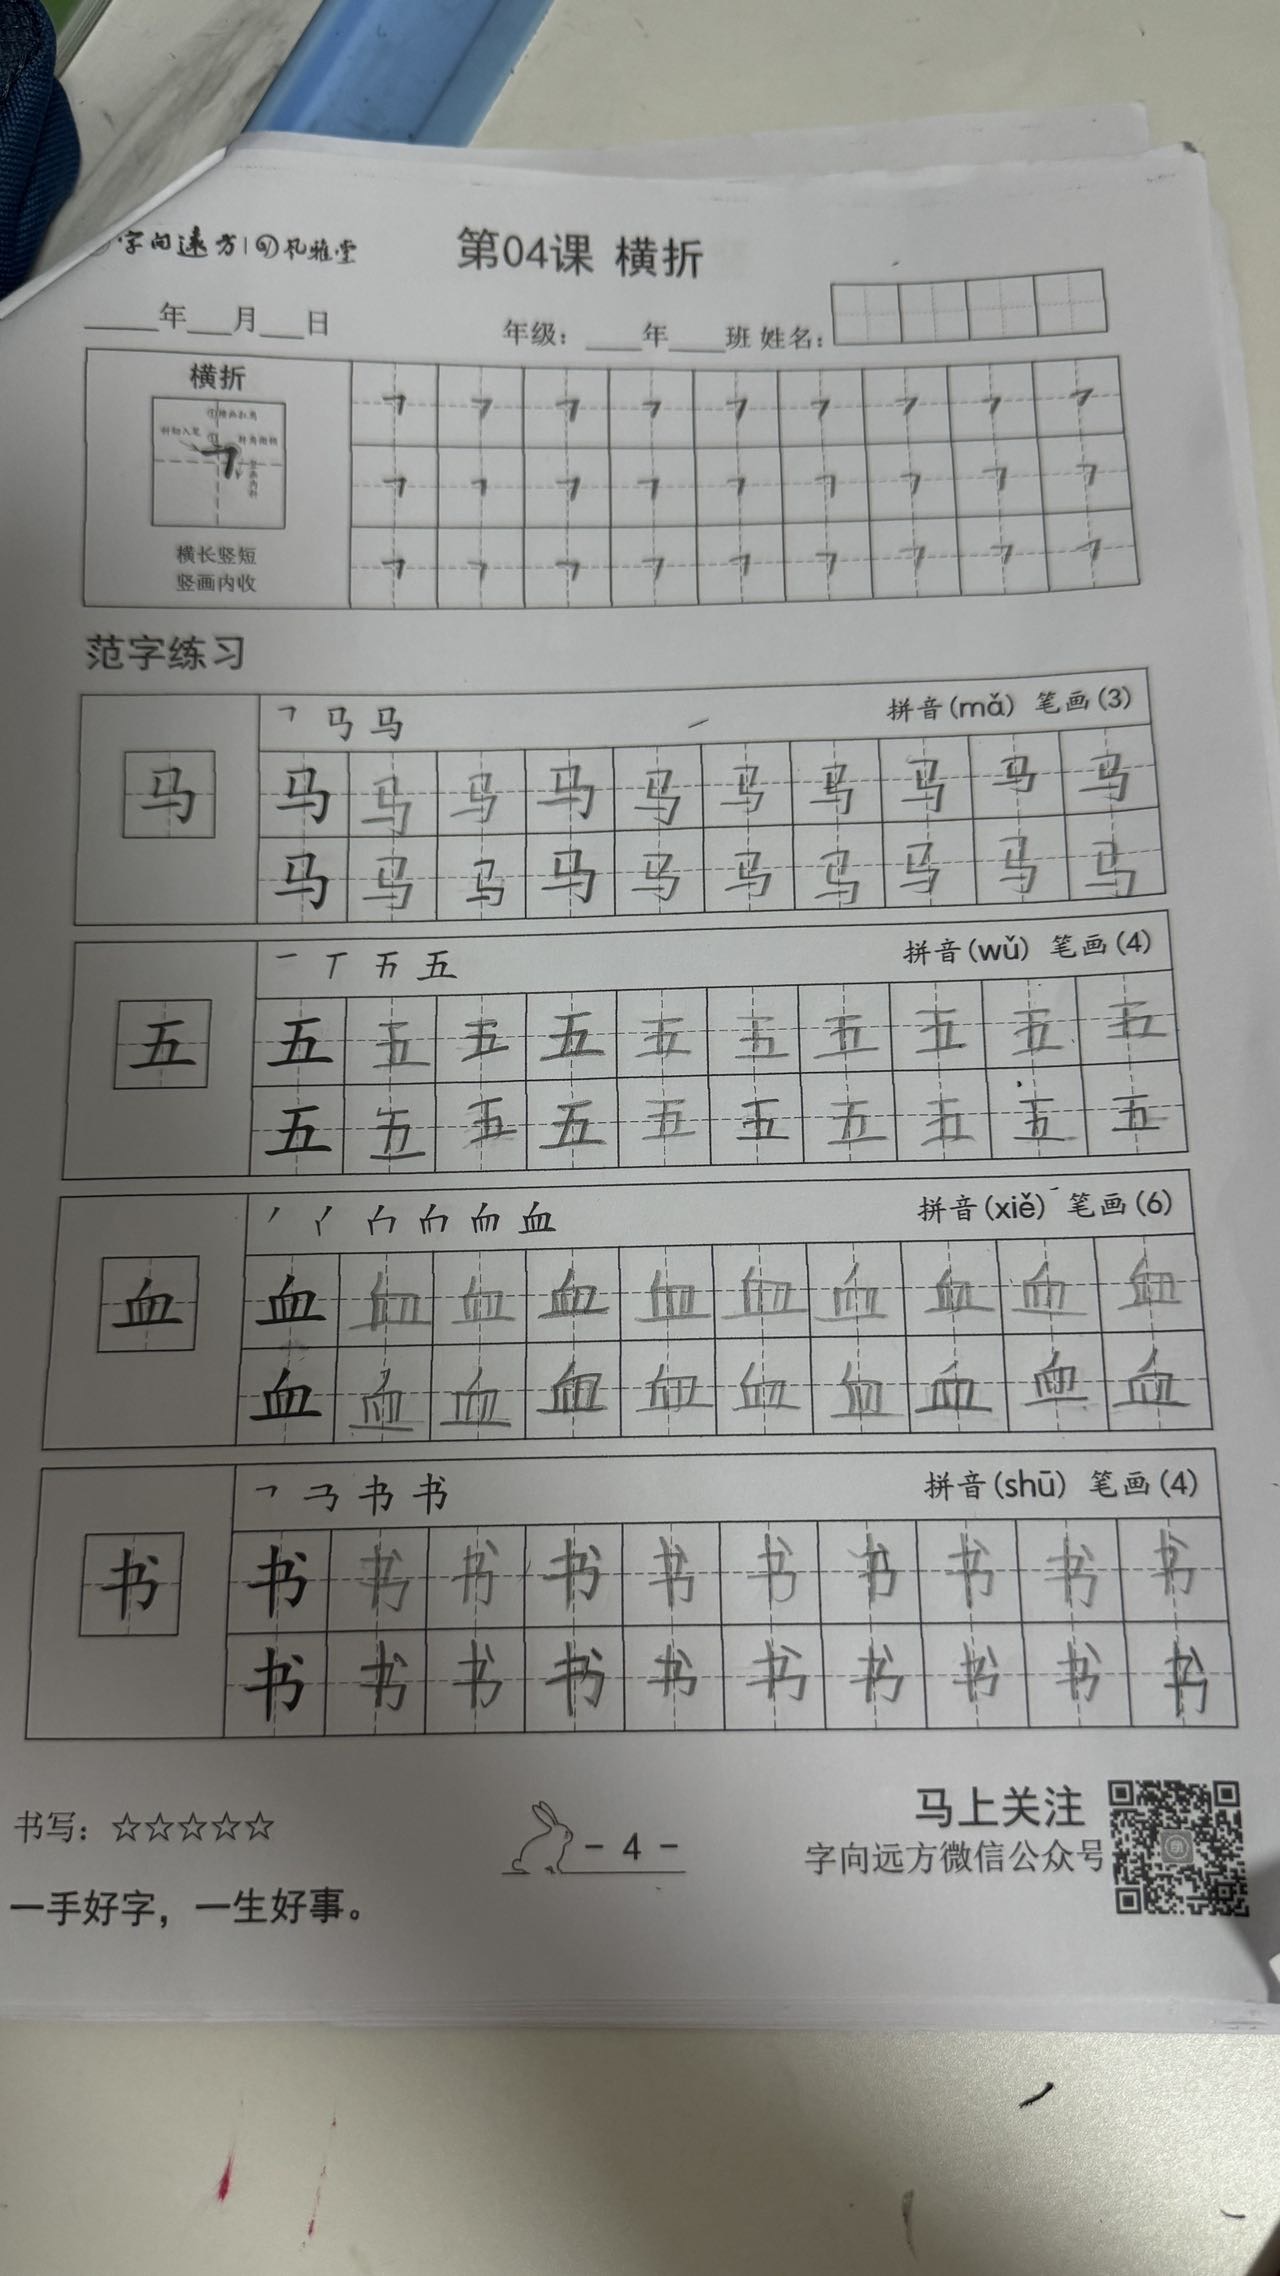 字向远方|风雅堂
第04课 横折
年 月 日 年级： 年 班 姓名：
横折
横长竖短
竖画内收
范字练习
马 拼音(mǎ) 笔画(3)
马 马 马 马 马 马 马 马 马 马 马
马 马 马 马 马 马 马 马 马 马
五 拼音(wǔ) 笔画(4)
五 五 五 五 五 五 五 五 五 五 五
五 五 五 五 五 五 五 五 五 五
血 拼音(xiě) 笔画(6)
血 血 血 血 血 血 血 血 血 血 血
血 血 血 血 血 血 血 血 血 血
书 拼音(shū) 笔画(4)
书 书 书 书 书 书 书 书 书 书 书
书 书 书 书 书 书 书 书 书 书
书写：☆☆☆☆☆
- 4 -
马上关注
字向远方微信公众号
一手好字，一生好事。